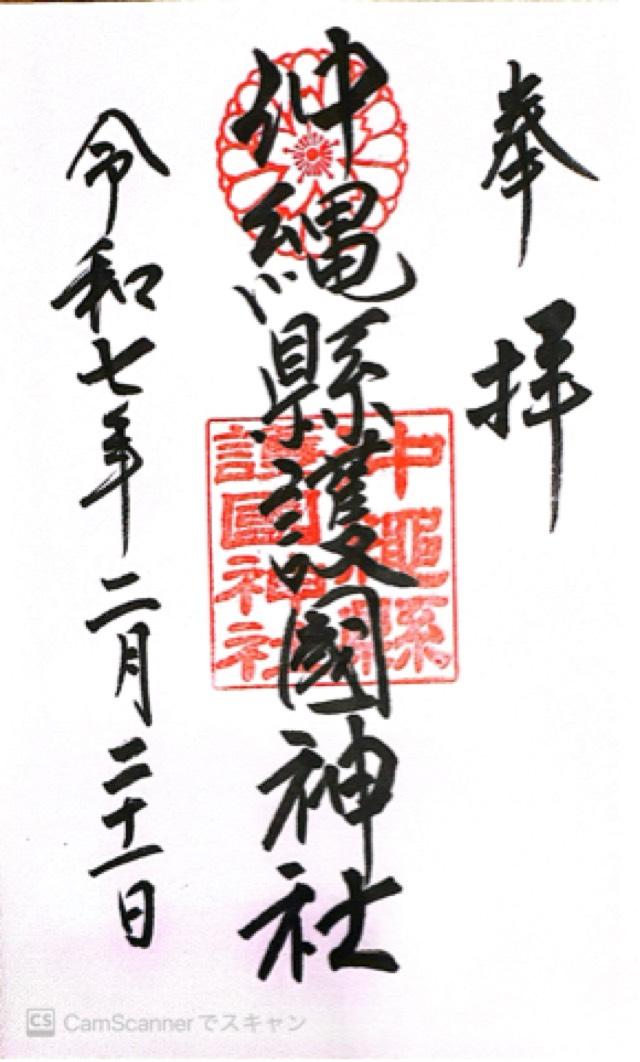 奉拝
沖縄縣護國神社
沖縄縣
護國神社
令和七年二月二十一日
CS CamScannerでスキャン